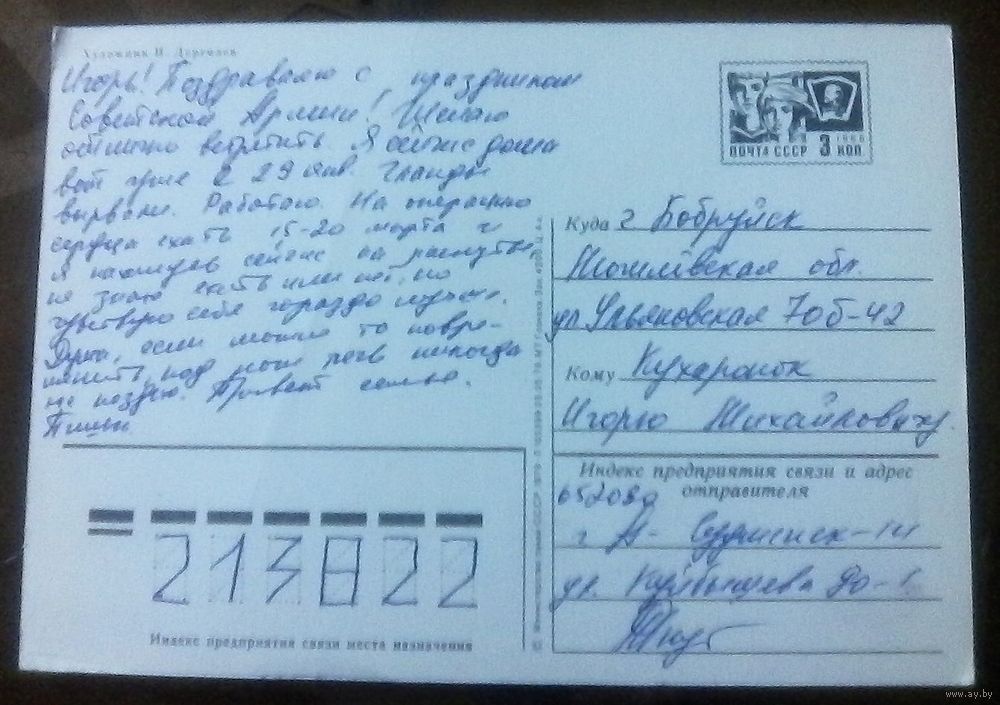 Художник И. Дергилев
Игорь! Поздравляю с праздником
Советской Армии! Желаю
отлично встретить. Я сейчас дома
вот уже с 29 янв. Гланды
вырвали. Работаю. На операцию
сердца ехать 15-20 марта и
я нахожусь сейчас на распутье,
не знаю ехать или нет, но
чувствую себя гораздо лучше.
если можно то повре-
менить, под нож лечь никогда
не поздно. Привет семье.
Пиши
ПОЧТА СССР 3 КОП.
1966
Куда г Бобруйск
Могилёвская обл.
ул Ульяновская 70б-42
Кому Кухаронок
Игорю Михайловичу.
Индекс предприятия связи и адрес
отправителя
652089
г А- Судженск-
ул. Куйбышева 20-1
213822
Индекс предприятия связи места назначения
www.ay.by